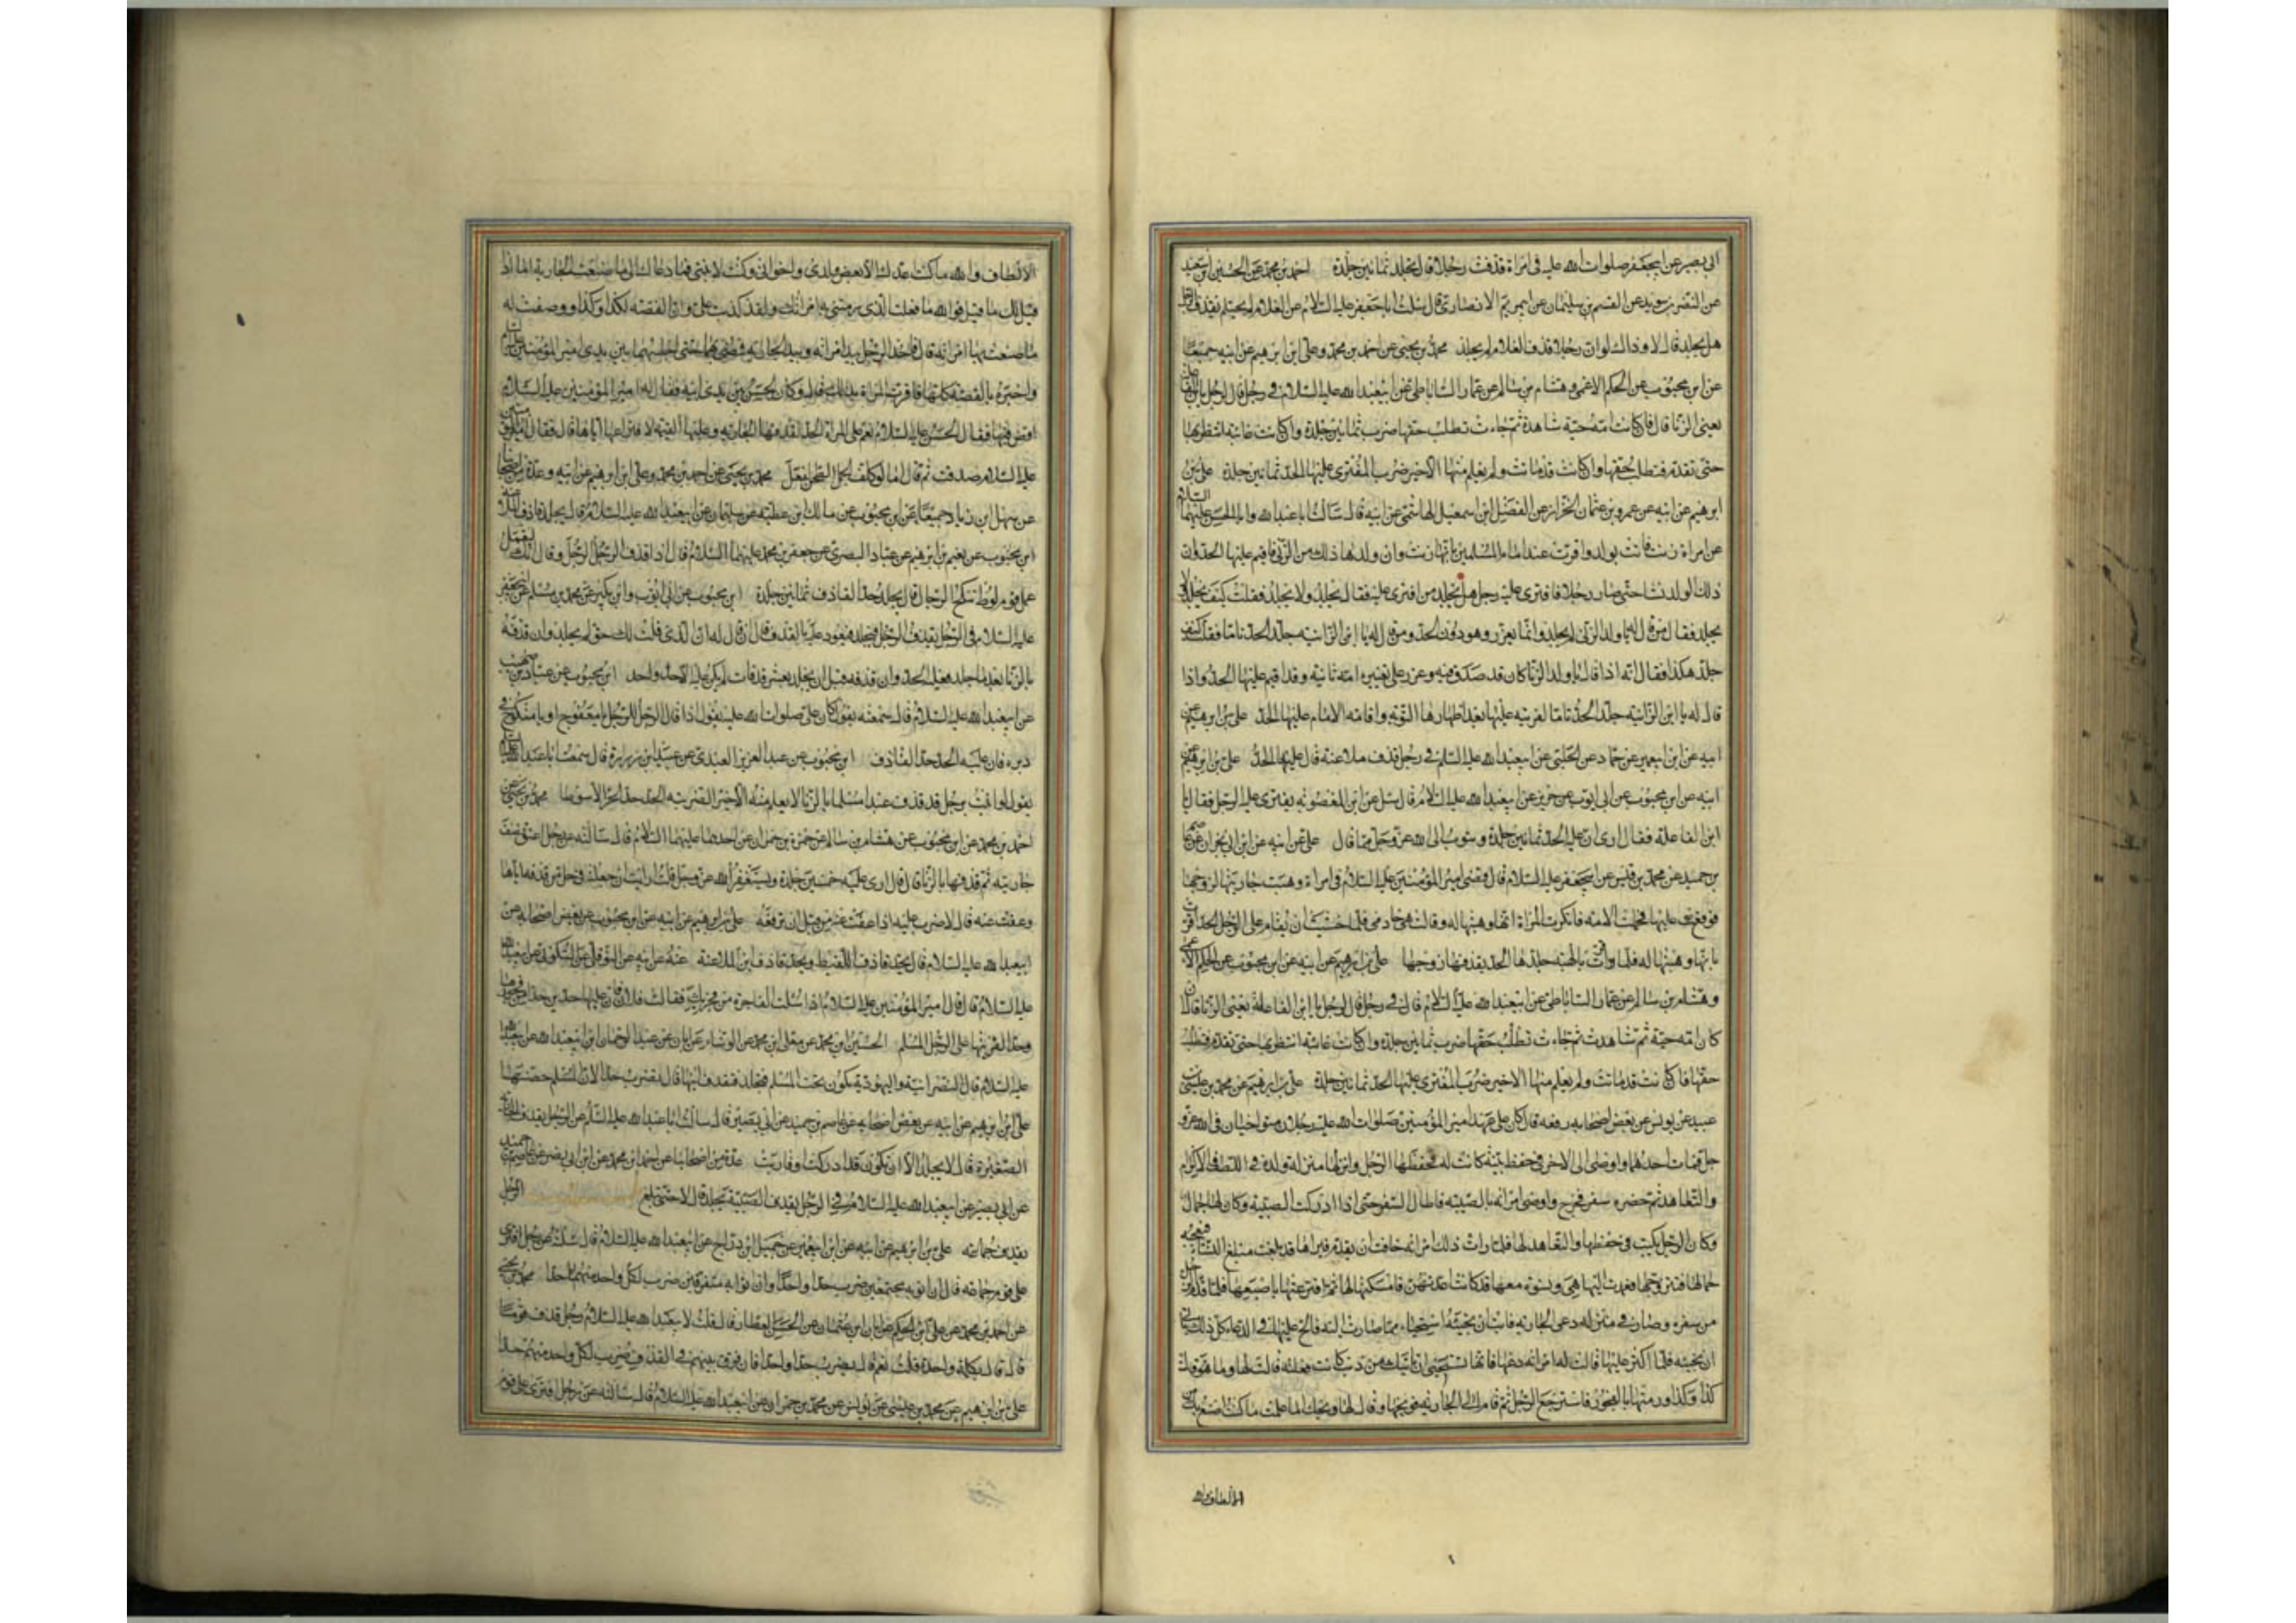 ابي بصير عن ابي جعفر صلوات الله عليه في امراة قذفت رجلا قال تجلد ثمانين جلدة احمد بن محمد عن الحسين ابن سعيد
عن النضر بن سويد عن القسم بن سليمان عن ابي مريم الانصاري قال سئلت ابا جعفر عليه السلام عن الغلام لم يحتلم يقذف الرجل
هل يجلد قال لا وذاك لو ان رجلا قذف الغلام لم يجلد محمد بن يحيى عن احمد بن محمد وعلي ابن ابرهيم عن ابيه جميعا
عن ابن محبوب عن الحكم الاعمى وهشام بن سالم عن عمار الساباطي عن ابيعبدالله عليه السلام في رجل قال لرجل يا ابن الفاعلة
يعني الزنا قال فان كانت امه حية شاهدة ثم جاءت تطلب حقها ضرب ثمانين جلدة وان كانت غائبة انتظر بها
حتى تقدم فتطلب حقها وان كانت قد ماتت ولم يعلم منها الا خير ضرب المفتري عليها الحد ثمانين جلدة علي بن
ابرهيم عن ابيه عن عمرو بن عثمان الخزاز عن الفضيل ابن اسمعيل الهاشمي عن ابيه قال سالت ابا عبدالله وابا الحسن عليهما السلام
عن امراة زنت فاتت بولد واقرت عند امام المسلمين بانها زنت وان ولدها ذلك من الزنى فاقيم عليها الحد وان
ذلك الولد نشا حتى صار رجلا فافترى عليه رجل هل يجلد من افترى عليه فقال يجلد ولا يجلد فقلت كيف يجلد ولا
يجلد فقال من قال له يا ولد الزنى لم يجلد وانما يعزر وهو دون الحد ومن قال له يا ابن الزانية جلد الحد تاما فقلت كيف
جلد هكذا فقال انه اذا قال يا ولد الزنا كان قد صدق فيه وعزر على تعييره امه ثانية وقد اقيم عليها الحد واذا
قال له يا ابن الزانية جلد الحد تاما لفريته عليها بعد اظهارها التوبة واقامة الامام عليها الحد علي بن ابرهيم عن
ابيه عن ابن ابيعمير عن حماد عن الحلبي عن ابيعبدالله عليه السلم في رجل قذف ملاعنة قال عليه الحد علي بن ابرهيم عن
ابيه عن ابن محبوب عن ابي ايوب عن حريز عن ابيعبدالله عليه السلام قال سئل عن ابن المغصوبة يفتري عليه الرجل فقال يا
ابن الفاعلة فقال ارى ان عليه الحد ثمانين جلدة ويتوب الى الله عز وجل مما قال علي عن ابيه عن ابن ابي نجران عن عاصم
بن حميد عن محمد بن قيس عن ابيجعفر عليه السلام قال قضى امير المؤمنين عليه السلام في امراة وهبت جاريتها لزوجها
فوقع عليها فحملت الامة فانكرت المراة انها وهبتها له وقالت هي خادمي فلما خشيت ان يقام على الرجل الحد اقرت
بانها وهبتها له فلما اقرت بالهبة جلدها الحد بقذفها زوجها علي بن ابرهيم عن ابيه عن ابن محبوب عن الحكم الاعمى
وهشام بن سالم عن عمار الساباطي عن ابيعبدالله عليه السلام قال في رجل قال لرجل يا ابن الفاعلة يعني الزنا قال ان
كان امه حية ثم شاهدت ثم جاءت تطلب حقها ضرب ثمانين جلدة وان كانت غائبة انتظر بها حتى تقدم فتطلب
حقها فان كانت قد ماتت ولم يعلم منها الا خير ضرب المفتري عليها الحد ثمانين جلدة علي بن ابرهيم عن محمد بن عيسى بن
عبيد عن يونس عن بعض اصحابه رفعه قال كان على عهد امير المؤمنين صلوات الله عليه رجلان متواخيان في الله عز و
جل فمات احدهما واوصى الى الاخر في حفظ بنية كانت له فحفظها الرجل وانزلها منزلة ولده في اللطف والاكرام
والتعاهد ثم حضره سفر فخرج واوصى امراته بالصبية فاطال السفر حتى اذا ادركت الصبية وكان لها جمال
وكان الرجل يكتب في حفظها والتعاهد لها فلما رات ذلك امراته خافت ان يقدم فيراها قد بلغت مبلغ النساء فيعجبه
جمالها فيتزوجها فعمدت اليها هي ونسوة معها قد كانت اعدتهن فامسكنها لها ثم افترعتها باصبعها فلما قدم الرجل
من سفره وصار في منزله دعى الجارية فابت ان تجيبه استحياء مما صارت اليه فالح عليها في الدعاء كل ذلك تابى
ان تجيبه فلما اكثر عليها قالت له امراته دعها فانها تستحيي ان تاتيك من ذنب كانت فعلته قال لها وما هو قالت
كذا وكذا ورمتها بالفجور فاسترجع الرجل ثم قام الى الجارية فوبخها وقال لها ويحك اما علمت ما كنت اصنع بك من
الالطاف والله
الالطاف والله ما كنت اعدك الا لبعض ولدي واخواني وكنت لابنتي فما دعاك الى ما صنعت فقالت الجارية اما اذا
قيل لك ما قيل فوالله ما فعلت الذي رمتني به امراتك ولقد كذبت علي وان القصة لكذا وكذا ووصفت له
ما صنعت بها امراته قال فاخذ الرجل بيد امراته وبيد الجارية فمضى بهما حتى اجلسهما بين يدي امير المؤمنين عليه السلام
واخبره بالقصة كلها فاقرت المراة بذلك قال وكان الحسن بين يدي ابيه فقال له امير المؤمنين عليه السلام
اقض فيها فقال الحسن عليه السلام نعم على المراة الحد لقذفها الجارية وعليها القيمة لافتراعها اياها قال فقال امير المؤمنين
عليه السلام صدقت ثم قال اما لو كلف الجمل الطحن لفعل محمد بن يحيى عن احمد بن محمد وعلي ابن ابرهيم عن ابيه وعدة من اصحابنا
عن سهل ابن زياد جميعا عن ابن محبوب عن مالك ابن عطية عن سليمان عن ابيعبدالله عليه السلام قال يجلد قاذف
ابن محبوب عن نعيم بن ابرهيم عن عباد البصري عن جعفر بن محمد عليهما السلام قال اذا قذف الرجل الرجل وقال انك لتعمل
عمل قوم لوط تنكح الرجال قال يجلد حد القاذف ثمانين جلدة ابن محبوب عن ابي ايوب وابن بكير عن محمد بن مسلم عن ابيجعفر
عليه السلام في الرجل يقذف الرجل فيجلد فيعود عليه بالقذف قال ان قال له ان الذي قلت لك حق لم يجلد وان قذفه
بالزنا بعد ما جلد فعليه الحد وان قذفه قبل ان يجلد بعشر قذفات لم يكن عليه الا حد واحد ابن محبوب عن عباد بن صهيب
عن ابيعبدالله عليه السلام قال سمعته يقول كان علي صلوات الله عليه يقول اذا قال الرجل للرجل يا معفوج او يا منكوح في
دبره فان عليه الحد حد القاذف ابن محبوب عن عبد العزيز العبدي عن عبيد ابن زرارة قال سمعت ابا عبدالله عليه السلام
يقول لو اتيت برجل قد قذف عبدا مسلما بالزنا لا يعلم منه الا خيرا لضربته الحد حد الحر الا سوطا محمد بن يحيى عن
احمد بن محمد عن ابن محبوب عن هشام بن سالم عن حمزة بن حمران عن احدهما عليهما السلام قال سالته عن رجل اعتق نصف
جاريته ثم قذفها بالزنا قال قال ارى عليه خمسين جلدة ويستغفر الله عز وجل قلت ارايت ان جعلته في حل من قذفه اياها
وعفت عنه قال لا ضرب عليه اذا عفت عنه من قبل ان ترفعه علي بن ابرهيم عن ابيه عن ابن محبوب عن بعض اصحابه عن
ابيعبدالله عليه السلام قال يحد قاذف اللقيط ويحد قاذف ابن الملاعنة عنه عن ابيه عن النوفلي عن السكوني عن ابيعبدالله
عليه السلام قال قال امير المؤمنين عليه السلام اذا سئلت الفاجرة من فجر بك فقالت فلان فان عليها حدين حدا لفجورها
وحدا لفريتها على الرجل المسلم الحسين ابن محمد عن معلى ابن محمد عن الوشاء عن ابان عن عبد الرحمان ابن ابيعبدالله عن ابيعبدالله
عليه السلام قال النصرانية واليهودية تكون تحت المسلم فتجلد فيقذف ابنها قال يضرب حدا لان المسلم حصنها
علي ابن ابرهيم عن ابيه عن بعض اصحابه عن عاصم بن حميد عن ابي بصير قال سالت ابا عبدالله عليه السلم عن الرجل يقذف الجارية
الصغيرة قال لا يجلد الا ان تكون قد ادركت او قاربت عدة من اصحابنا عن احمد ابن محمد عن ابن ابي نصر عن عاصم بن حميد
عن ابي بصير عن ابيعبدالله عليه السلام في الرجل يقذف الصبية يجلد قال لا حتى تبلغ الرجل
يقذف جماعة علي بن ابرهيم عن ابيه عن ابن ابيعمير عن جميل ابن دراج عن ابيعبدالله عليه السلام قال سئلته عن رجل افترى
على قوم جماعة قال ان اتوا به مجتمعين ضرب حدا واحدا وان اتوا به متفرقين ضرب لكل واحد منهم حدا محمد بن يحيى
عن احمد بن محمد عن علي ابن الحكم عن ابان ابن عثمان عن الحسن العطار قال قلت لابيعبدالله عليه السلام رجل قذف قوما
قال قال بكلمة واحدة قلت نعم قال يضرب حدا واحدا فان فرق بينهم في القذف ضرب لكل واحد منهم حدا
علي بن ابرهيم عن محمد بن عيسى عن يونس عن محمد بن حمران عن ابيعبدالله عليه السلام قال سالته عن رجل افترى على قوم